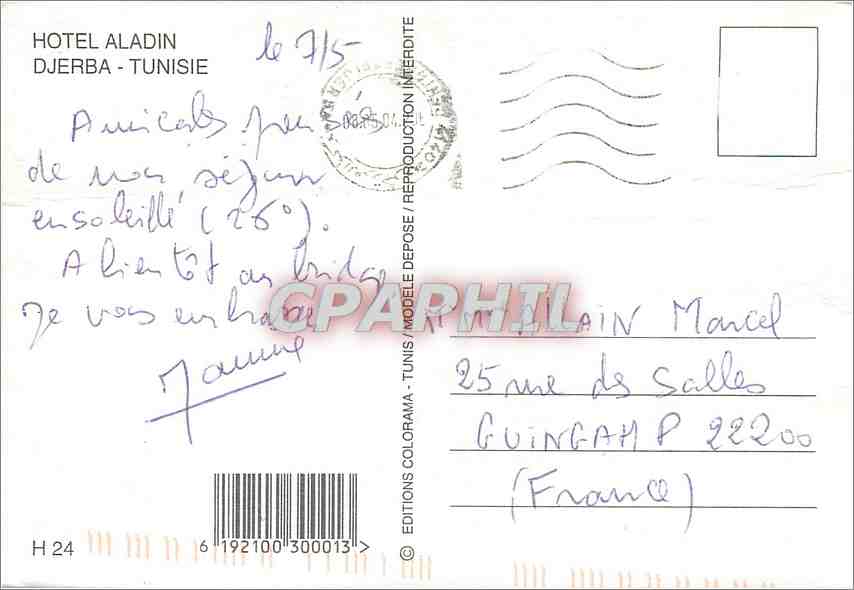 HOTEL ALADIN
DJERBA - TUNISIE
le 7/5
Amicales
de nos séjour
ensoleillé (26°).
A bientôt au bridge
Je vous embrasse
H 24
6 192100 300013 >
© EDITIONS COLORAMA - TUNIS / MODELE DEPOSE / REPRODUCTION INTERDITE
CPAPHIL
ALAIN Marcel
25 rue des Salles
GUINGAMP 22200
(France)